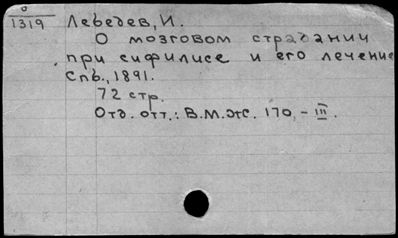 0
1319
Лебедев, И.
О мозговом страдании
при сифилисе и его лечение
Спб., 1891.
72 стр.
Отд. отт.: В.М.Ж. 170, - III.